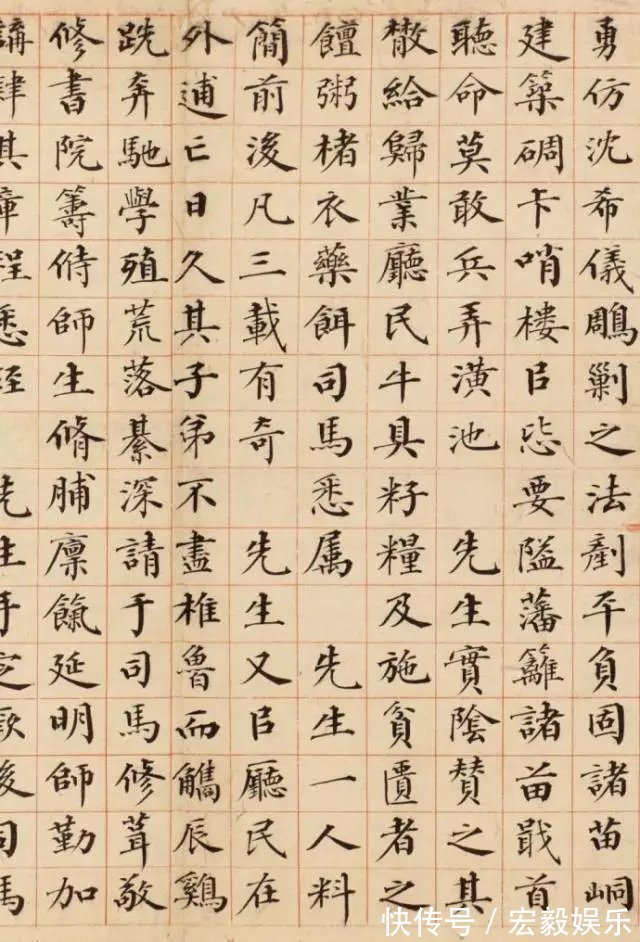 勇仿沈希儀鵰剿之法剷平負固諸苗峒
建築碉卡哨樓㠯毖要隘藩籬諸苗戢首
聽命莫敢兵弄潢池 先生實陰贊之其
散給歸業廳民牛具籽糧及施貧匱者之
饘粥楮衣藥餌司馬悉属 先生一人料
簡前後凡三載有奇 先生又㠯廳民在
外逋亡日久其子弟不盡椎魯而觿辰鷄
跣奔馳學殖荒落綦深請于司馬修葺敬
修書院籌偫師生脩脯廩餼延明師勤加
講肄其章程悉經 先生手定厥後司馬
快传号／宏毅娱乐